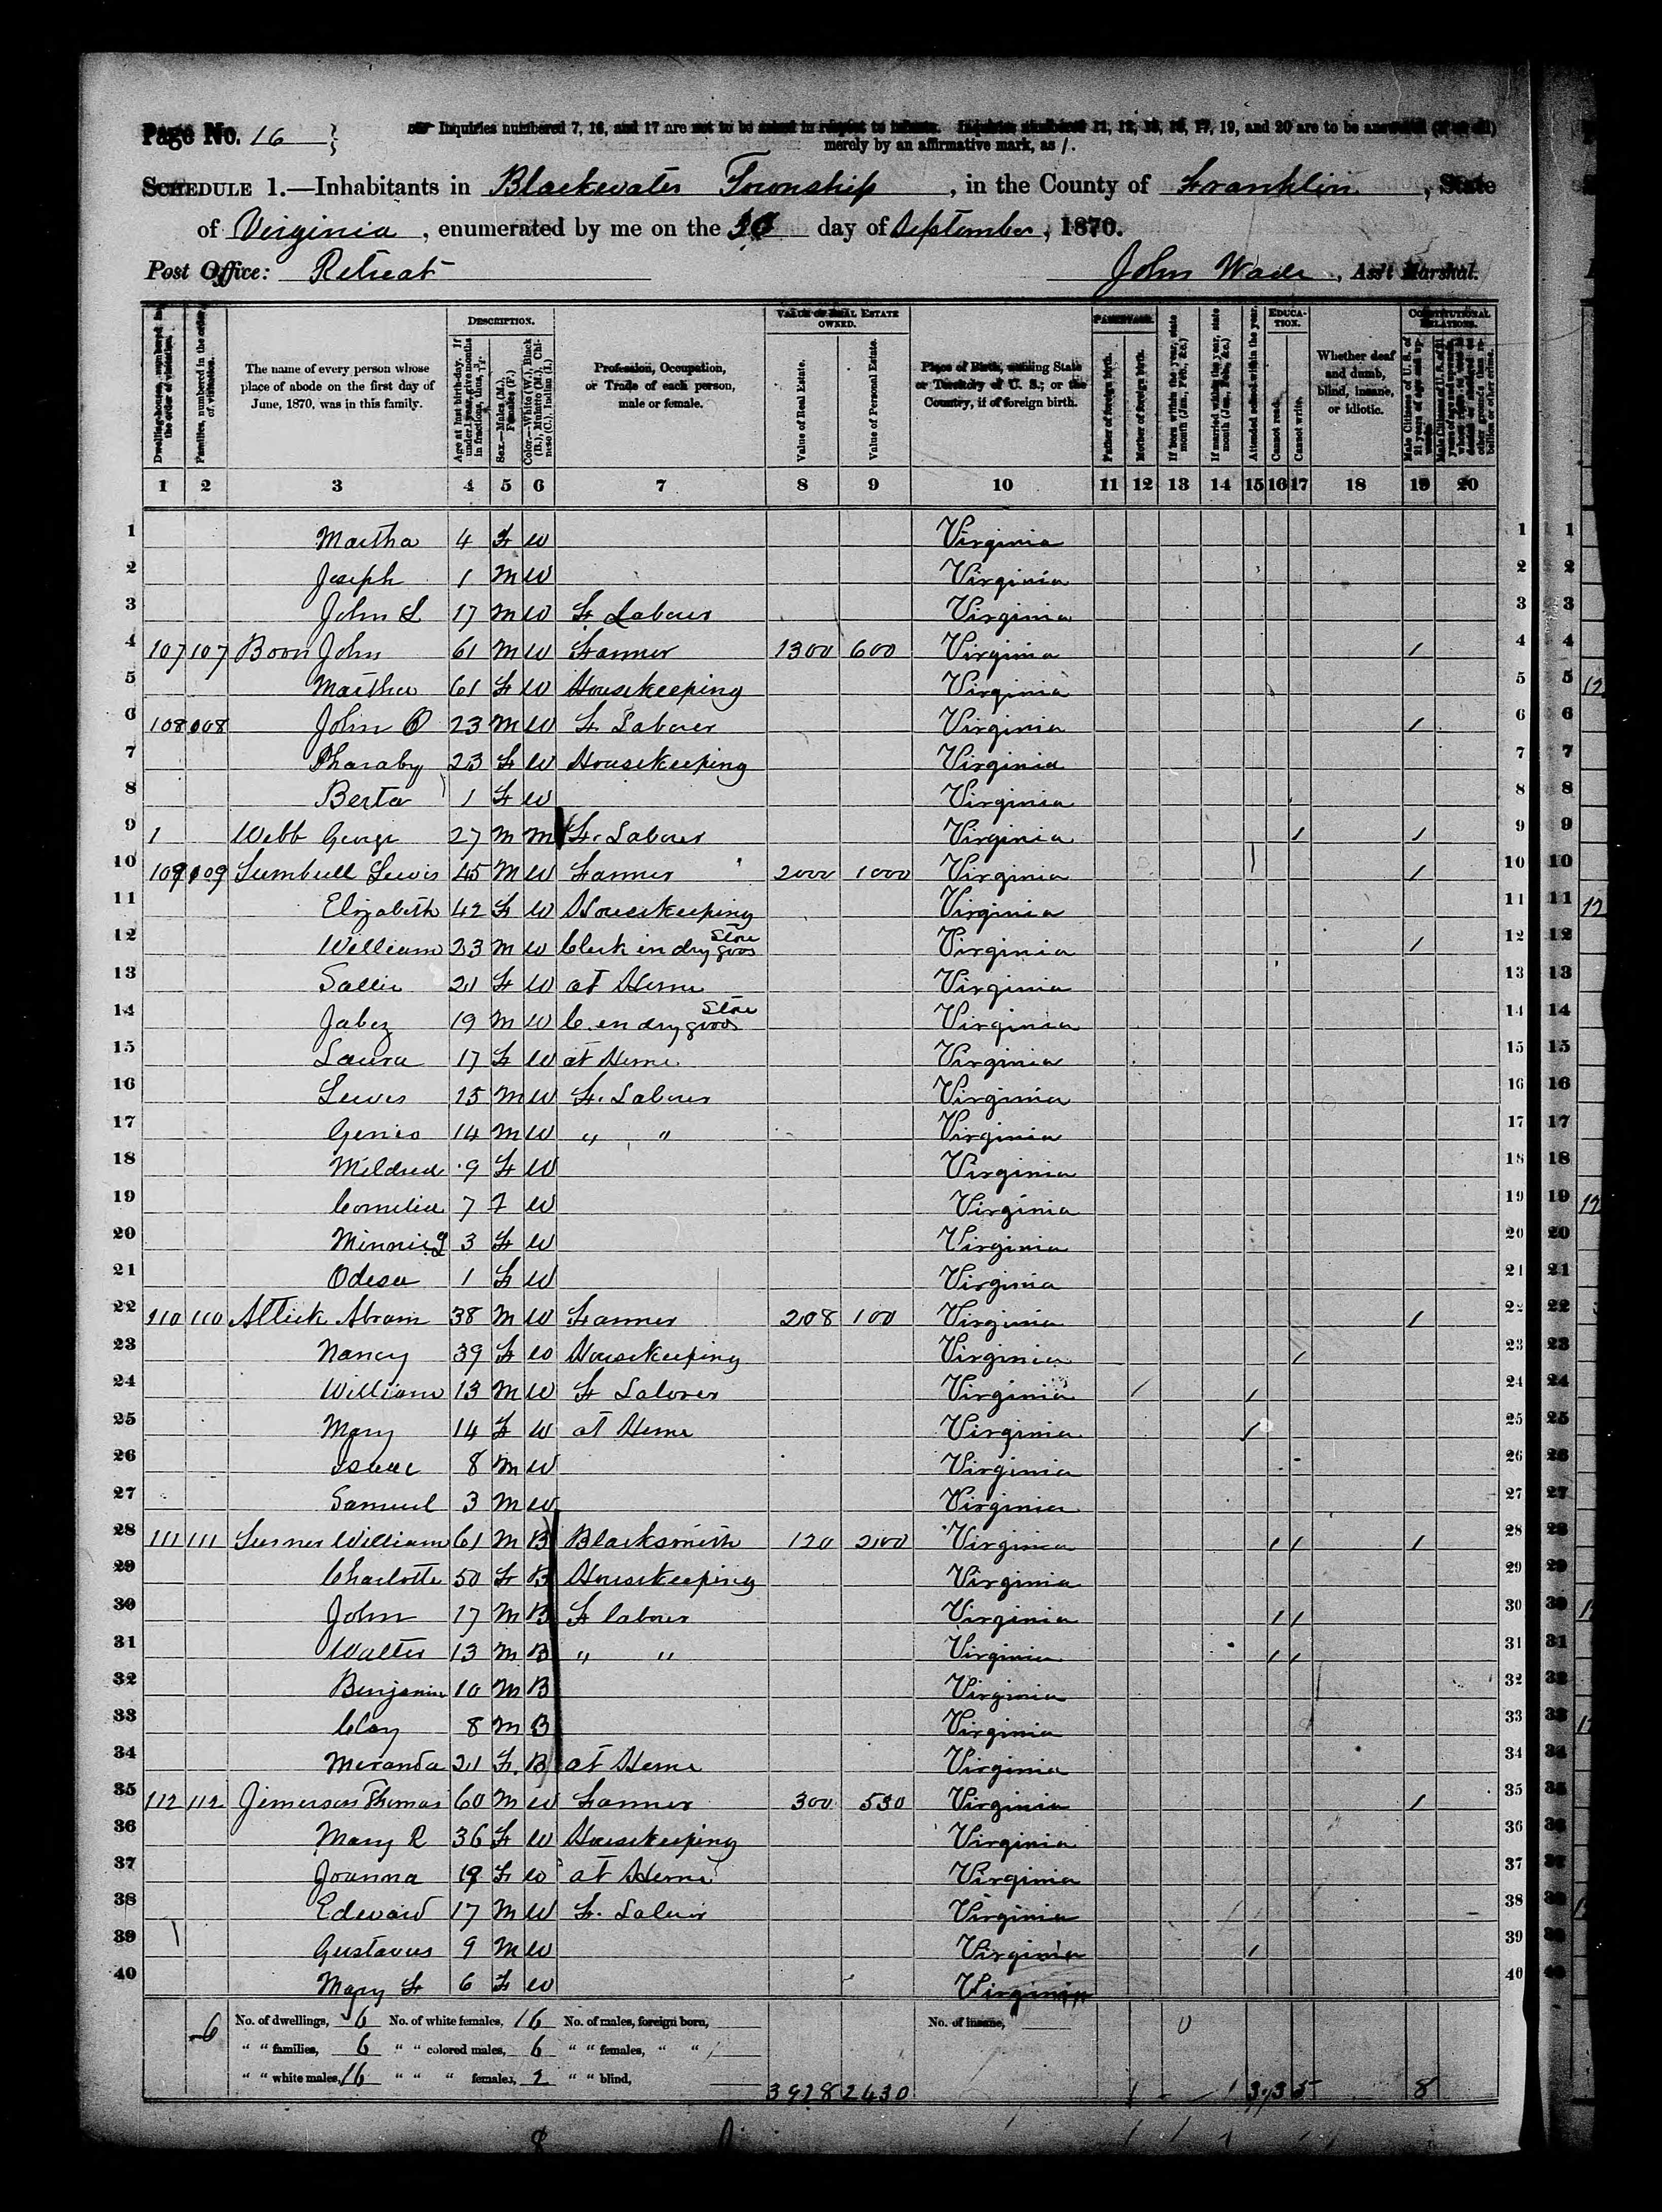 Page No. 16
Inquiries numbered 7, 16, and 17 are not to be asked in respect to infants. Inquiries numbered 11, 12, 15, 16, 17, 19, and 20 are to be answered (if at all)
merely by an affirmative mark, as /.
SCHEDULE 1.—Inhabitants in Blackwater Township, in the County of Franklin, State
of Virginia, enumerated by me on the day of September, 1870.
Post Office: Retreat John Wade, Ass't Marshal.
DESCRIPTION. VALUE OF REAL ESTATE OWNED. PARENTAGE. EDUCATION. CONSTITUTIONAL RELATIONS.
Dwelling-houses, numbered in the order of visitation.
Families, numbered in the order of visitation.
The name of every person whose place of abode on the first day of June, 1870, was in this family.
Age at last birth-day. If under 1 year, give months in fractions, thus, 3/12.
Sex.—Males (M.), Females (F.)
Color.—White (W.), Black (B.), Mulatto (M.), Chinese (C.), Indian (I.)
Profession, Occupation, or Trade of each person, male or female.
Value of Real Estate.
Value of Personal Estate.
Place of Birth, naming State or Territory of U. S.; or the Country, if of foreign birth.
Father of foreign birth.
Mother of foreign birth.
If born within the year, state month (Jan., Feb., &c.)
If married within the year, state month (Jan., Feb., &c.)
Attended school within the year.
Cannot read.
Cannot write.
Whether deaf and dumb, blind, insane, or idiotic.
Male Citizens of U. S. of 21 years of age and upwards.
1 2 3 4 5 6 7 8 9 10 11 12 13 14 15 16 17 18 19 20
1 Martha 4 F W Virginia 1
2 Joseph 1 M W Virginia 2
3 John S 17 M W F Labourer Virginia 3
4 107 107 Boon John 61 M W Farmer 1300 600 Virginia / 4
5 Martha 61 F W Housekeeping Virginia 5
6 108 108 John O 23 M W F Labourer Virginia / 6
7 Pharaby 23 F W Housekeeping Virginia 7
8 Berta 1 F W Virginia 8
9 1 Webb George 27 M M F. Labourer Virginia / / 9
10 109 109 Lumbull Lewis 45 M W Farmer 2000 1000 Virginia / 10
11 Elizabeth 42 F W Housekeeping Virginia 11
12 William 23 M W Clerk in dry goos Store Virginia / 12
13 Sallie 21 F W at Home Virginia 13
14 Jabez 19 M W C. in dry goos Store Virginia 14
15 Laura 17 F W at Home Virginia 15
16 Lewis 15 M W F. Labourer Virginia 16
17 14 M W " " Virginia 17
18 Mildred 9 F W Virginia 18
19 Cornelia 7 F W Virginia 19
20 Minnie 3 F W Virginia 20
21 Odesa 1 F W Virginia 21
22 110 110 Altick Abram 38 M W Farmer 208 100 Virginia / 22
23 Nancy 39 F W Housekeeping Virginia / 23
24 William 13 M W F Labourer Virginia / 24
25 Mary 14 F W at Home Virginia / 25
26 Isaac 8 M W Virginia 26
27 Samuel 3 M W Virginia 27
28 111 111 William 61 M B Blacksmith 120 200 Virginia / / / 28
29 Charlotte 50 F B Housekeeping Virginia 29
30 John 17 M B F labourer Virginia / / 30
31 Walter 13 M B " " Virginia / / 31
32 Benjamin 10 M B Virginia 32
33 Clay 8 M B Virginia 33
34 Meranda 21 F B at Home Virginia 34
35 112 112 Jimerson Thomas 60 M W Farmer 300 530 Virginia / 35
36 Mary R 36 F W Housekeeping Virginia 36
37 Joanna 19 F W at Home Virginia 37
38 Edward 17 M W F. Labour Virginia 38
39 Gustavus 9 M W Virginia / 39
40 Mary F 6 F W Virginia 40
6 No. of dwellings, 6 No. of white females, 16 No. of males, foreign born, No. of insane,
" " families, 6 " " colored males, 6 " " females, " "
" " white males, 16 " " " females, 2 " " blind,
3928 2430 3 3 5 8